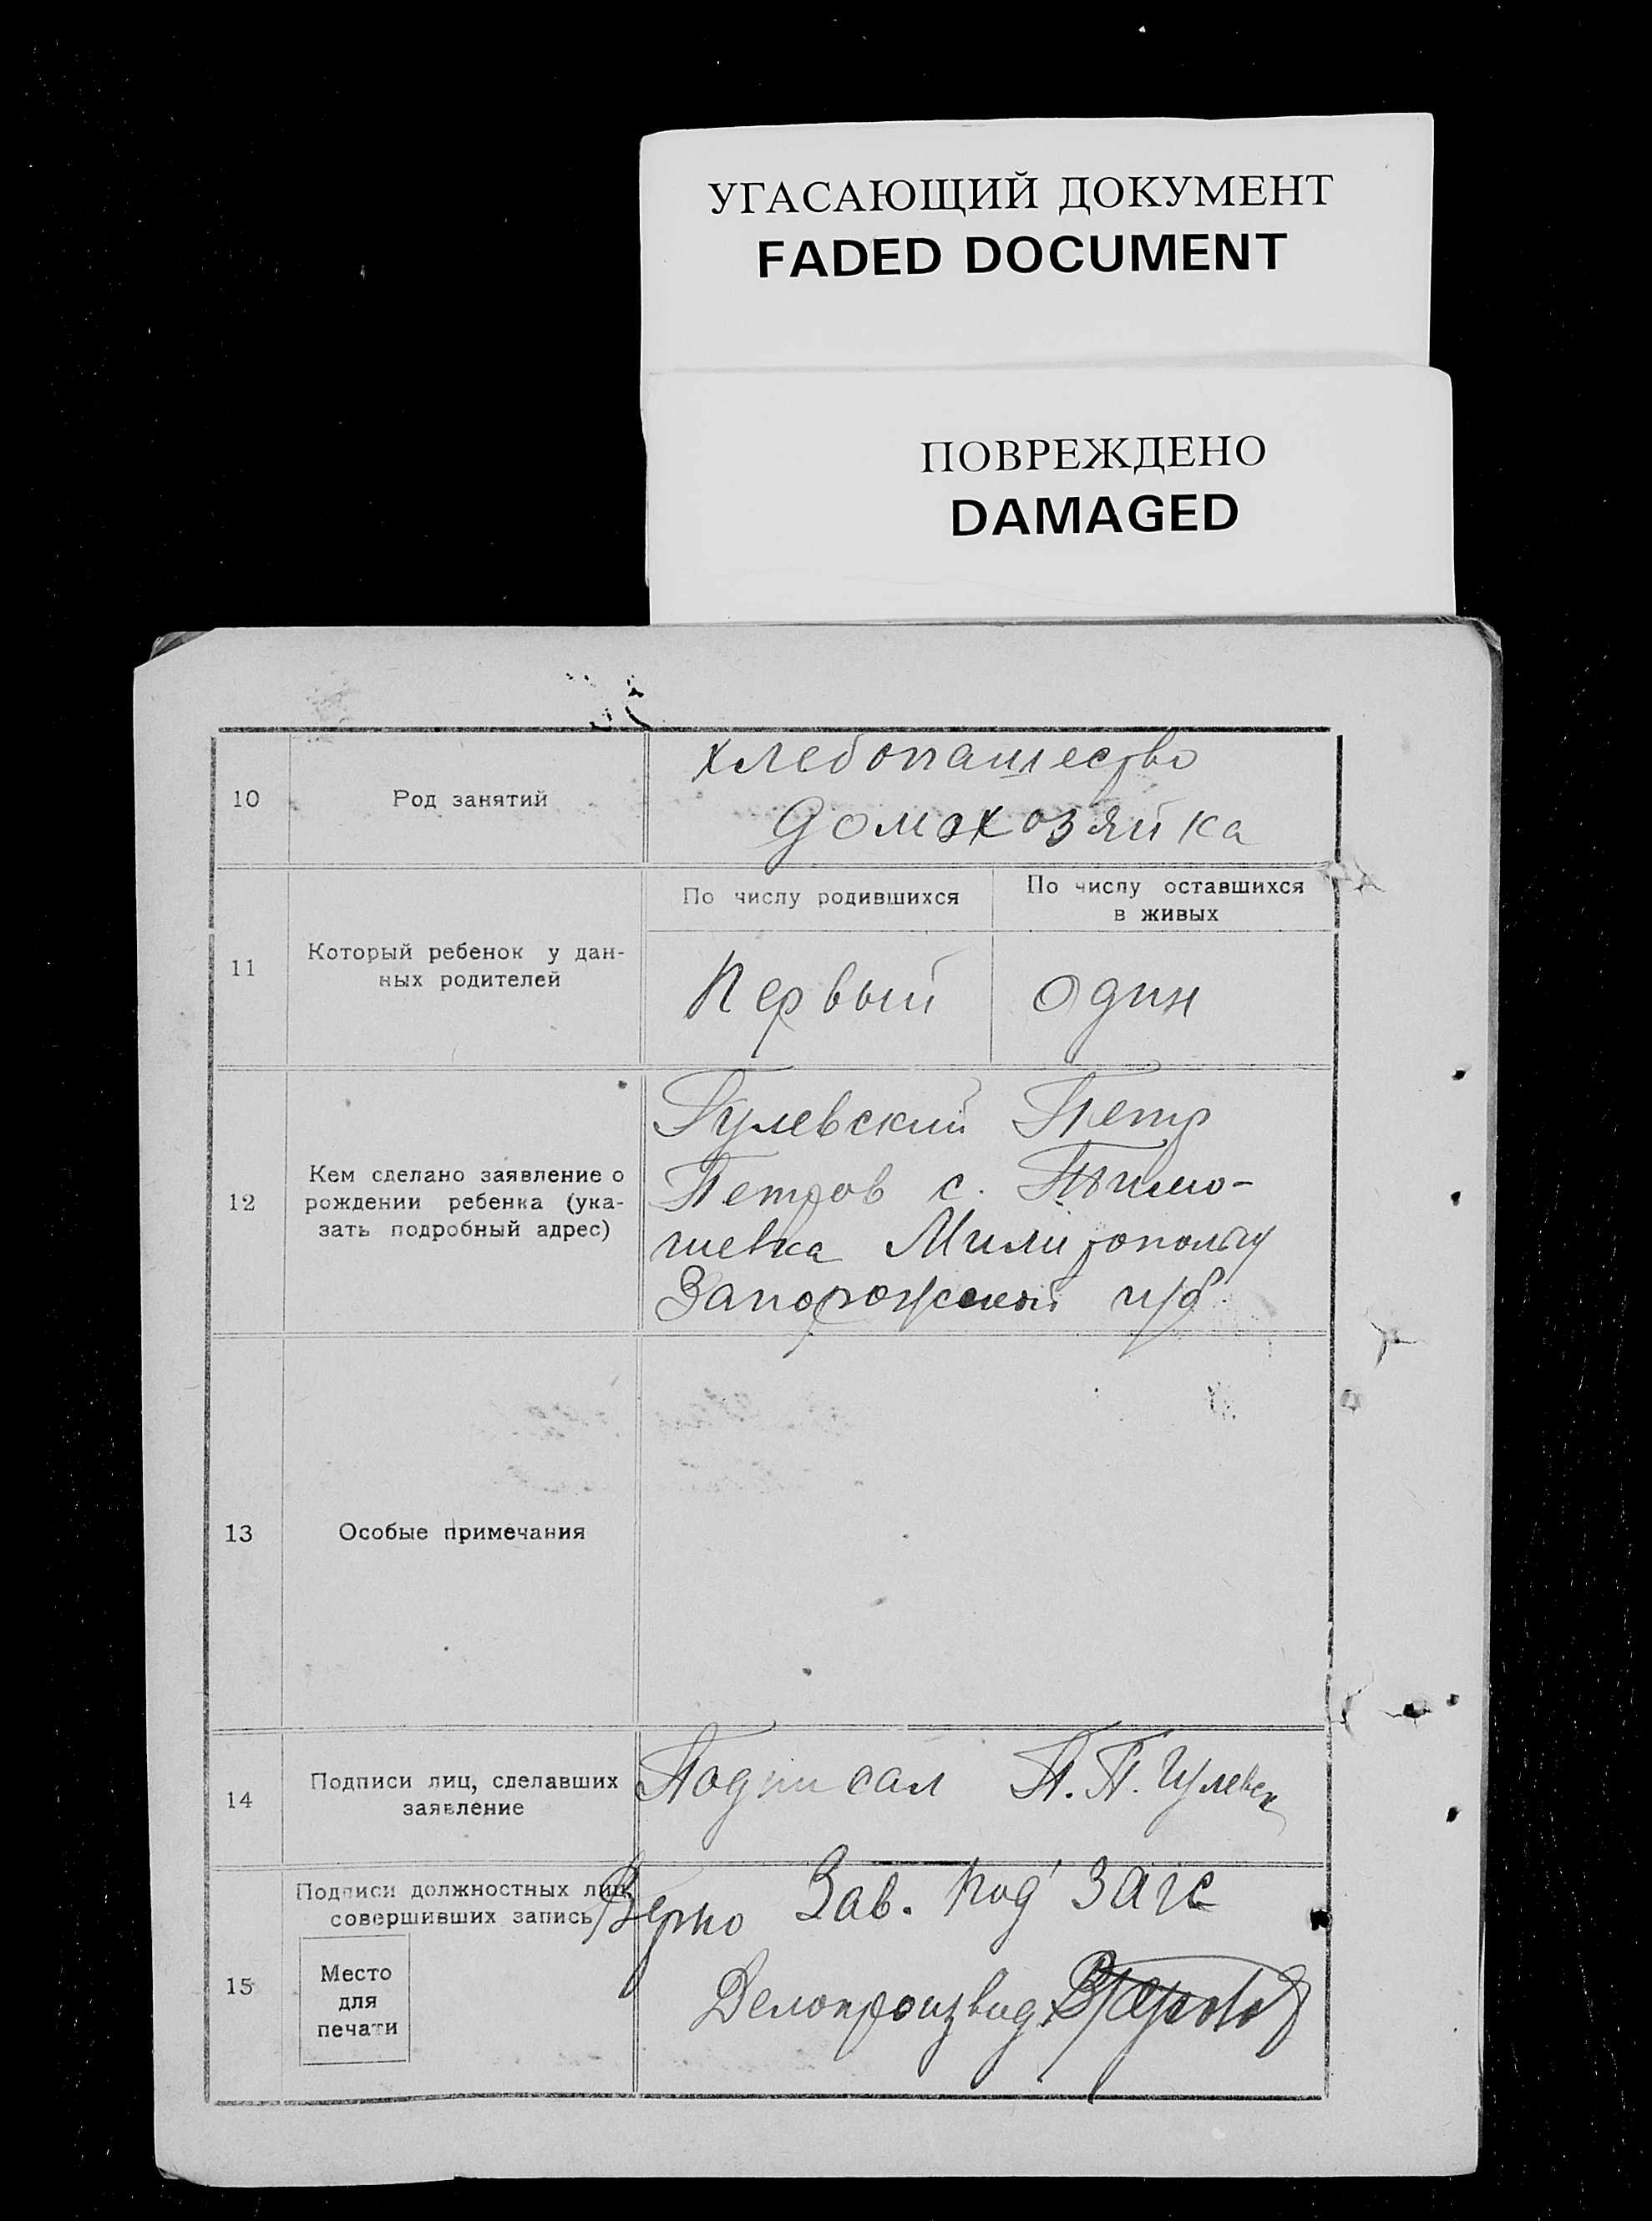 УГАСАЮЩИЙ ДОКУМЕНТ
FADED DOCUMENT
ПОВРЕЖДЕНО
DAMAGED
10
Род занятий
хлебопашество
домохозяйка
11
Который ребенок у дан-
ных родителей
По числу родившихся
По числу оставшихся
в живых
Первый
один
12
Кем сделано заявление о
рождении ребенка (ука-
зать подробный адрес)
Гулевский Петр
Петров с. Тимо-
шевка Милитопольщ
Запорожской губ.
13
Особые примечания
14
Подписи лиц, сделавших
заявление
Подписал П. П. Гулевск
15
Подписи должностных лиц,
совершивших запись
Место
для
печати
Верно Зав. Под ЗАГС
Делопроизвод.